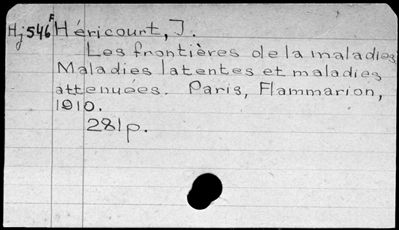 Hj546F Héricourt, J.
Les frontières de la maladies
Maladies latentes et maladies
attenuées. Paris, Flammarion,
1910.
281p.